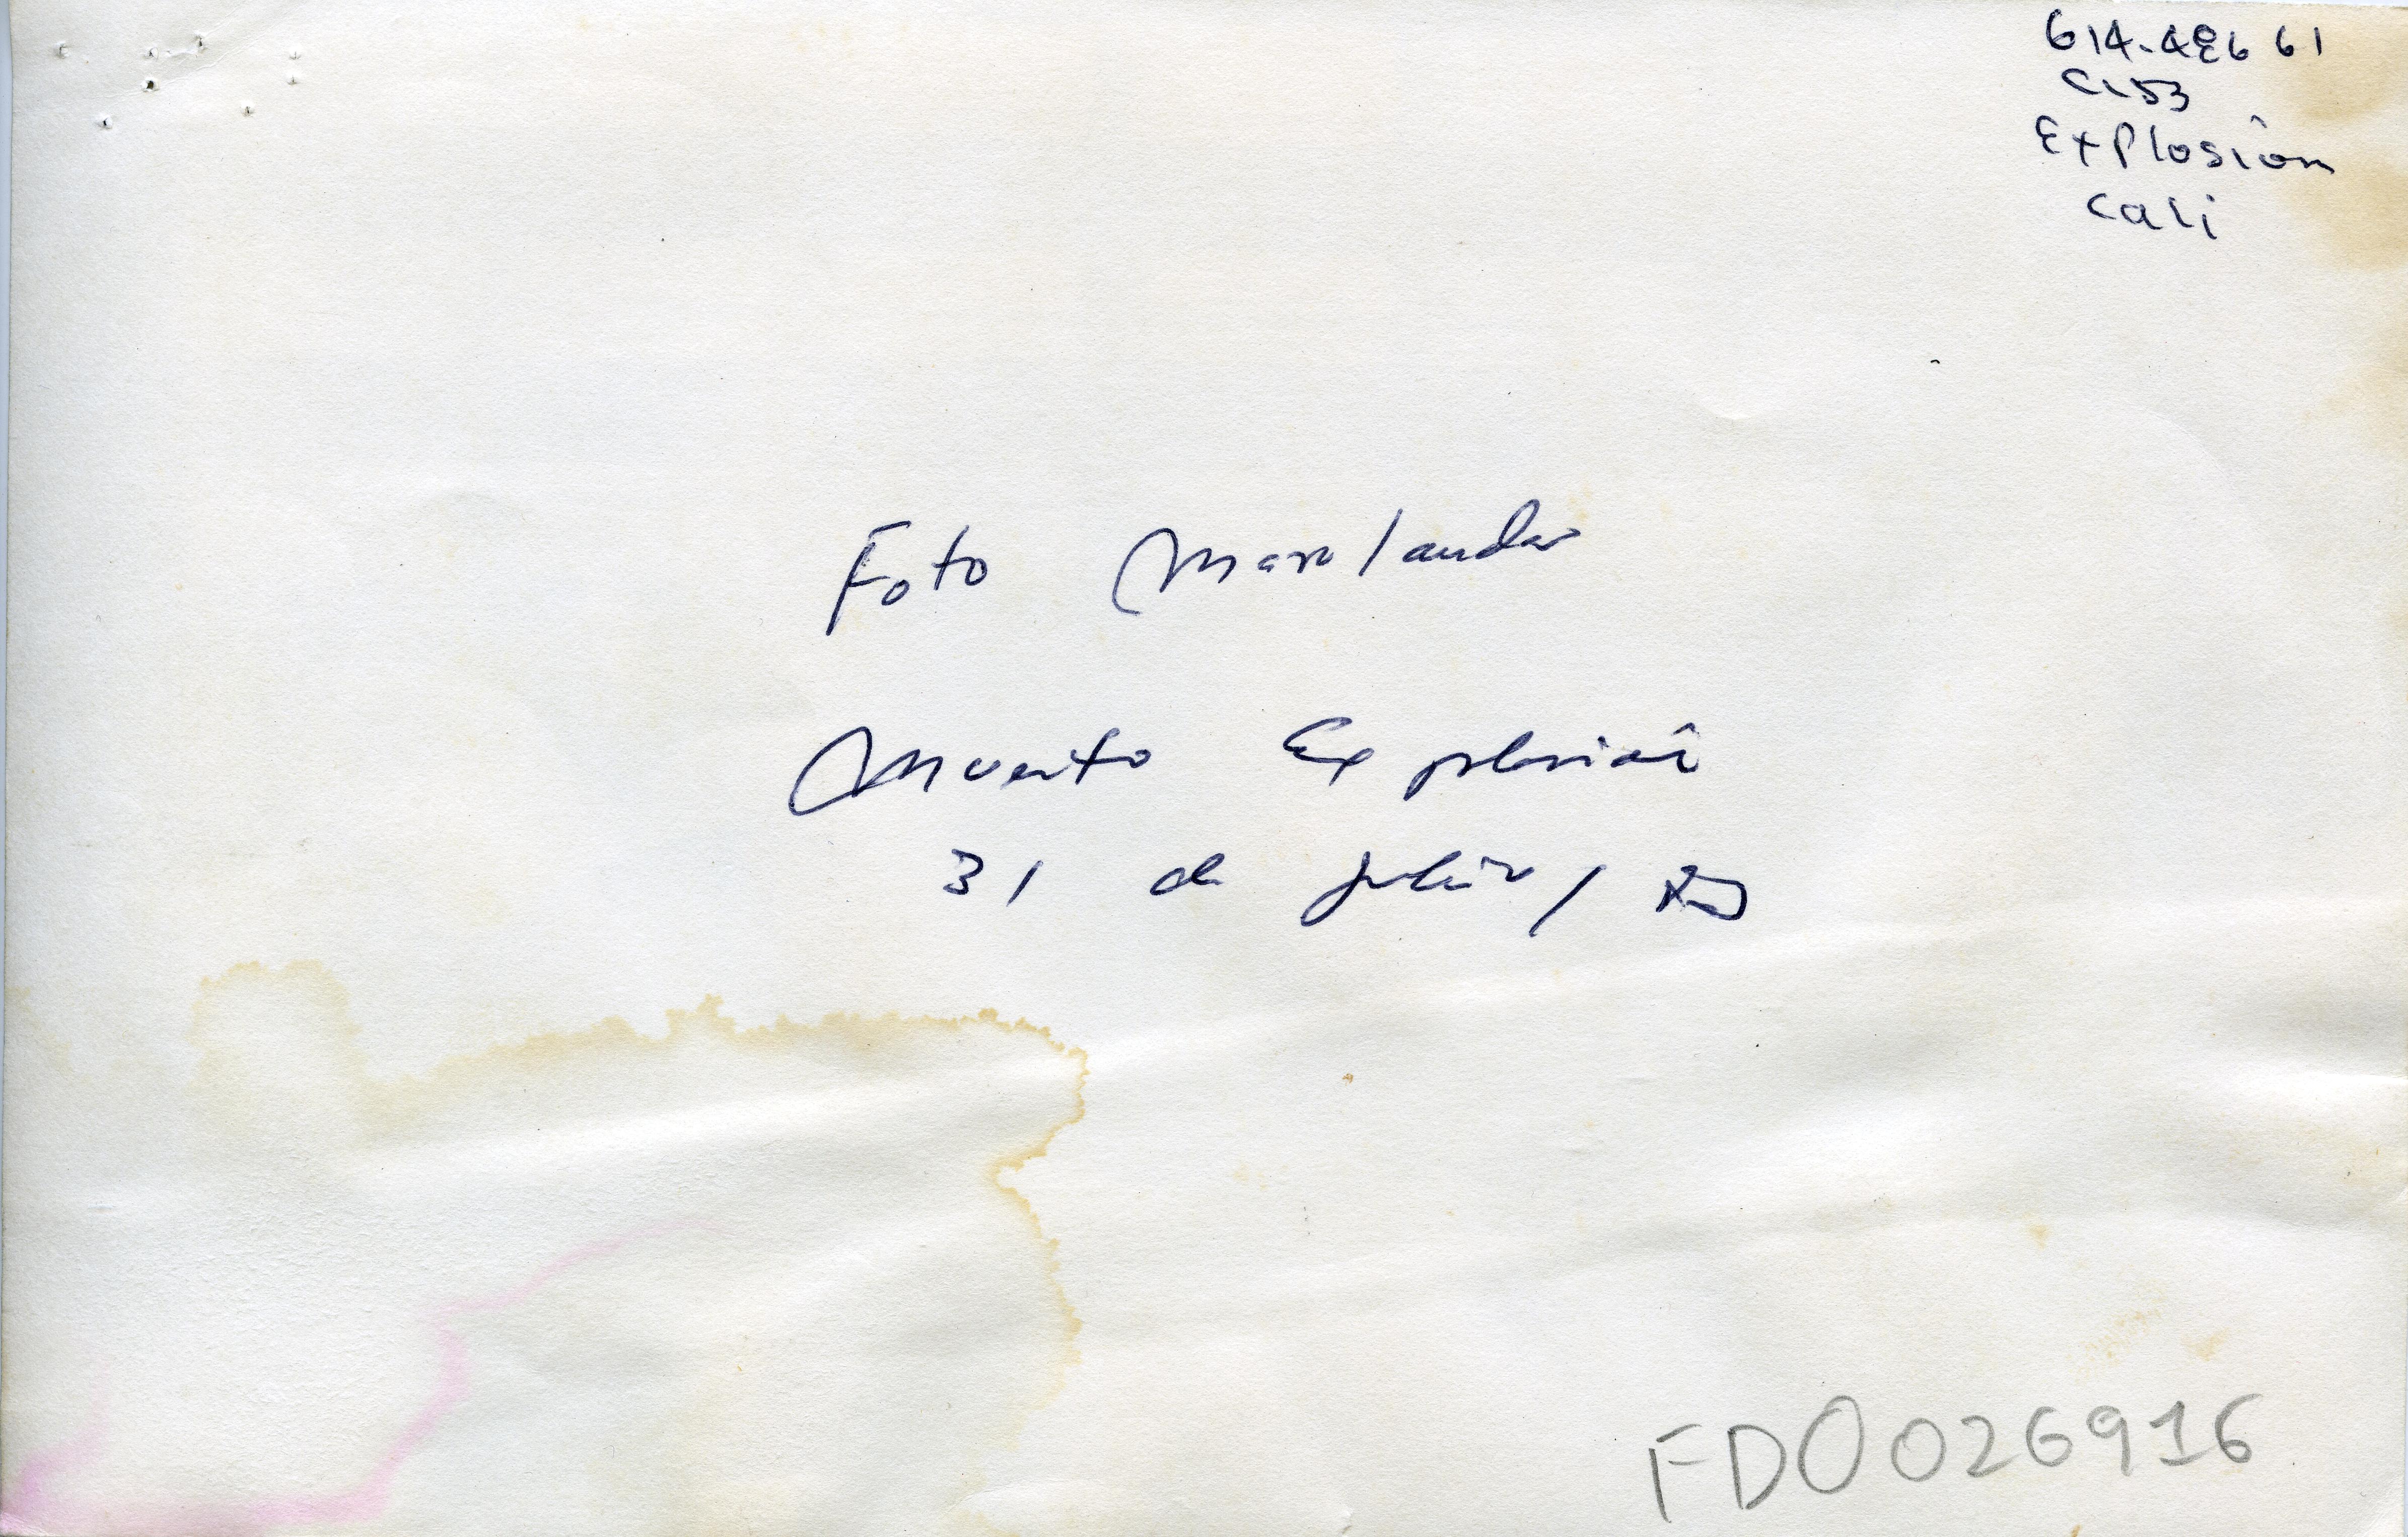 614.486 61
C153
Explosión
Cali
Foto Marulanda
Muerto Explosión
31 de julio /
FD0026916